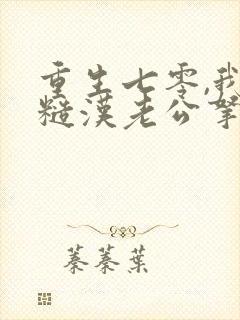 重生七零,我
糙漢老公寧
蓁蓁葉